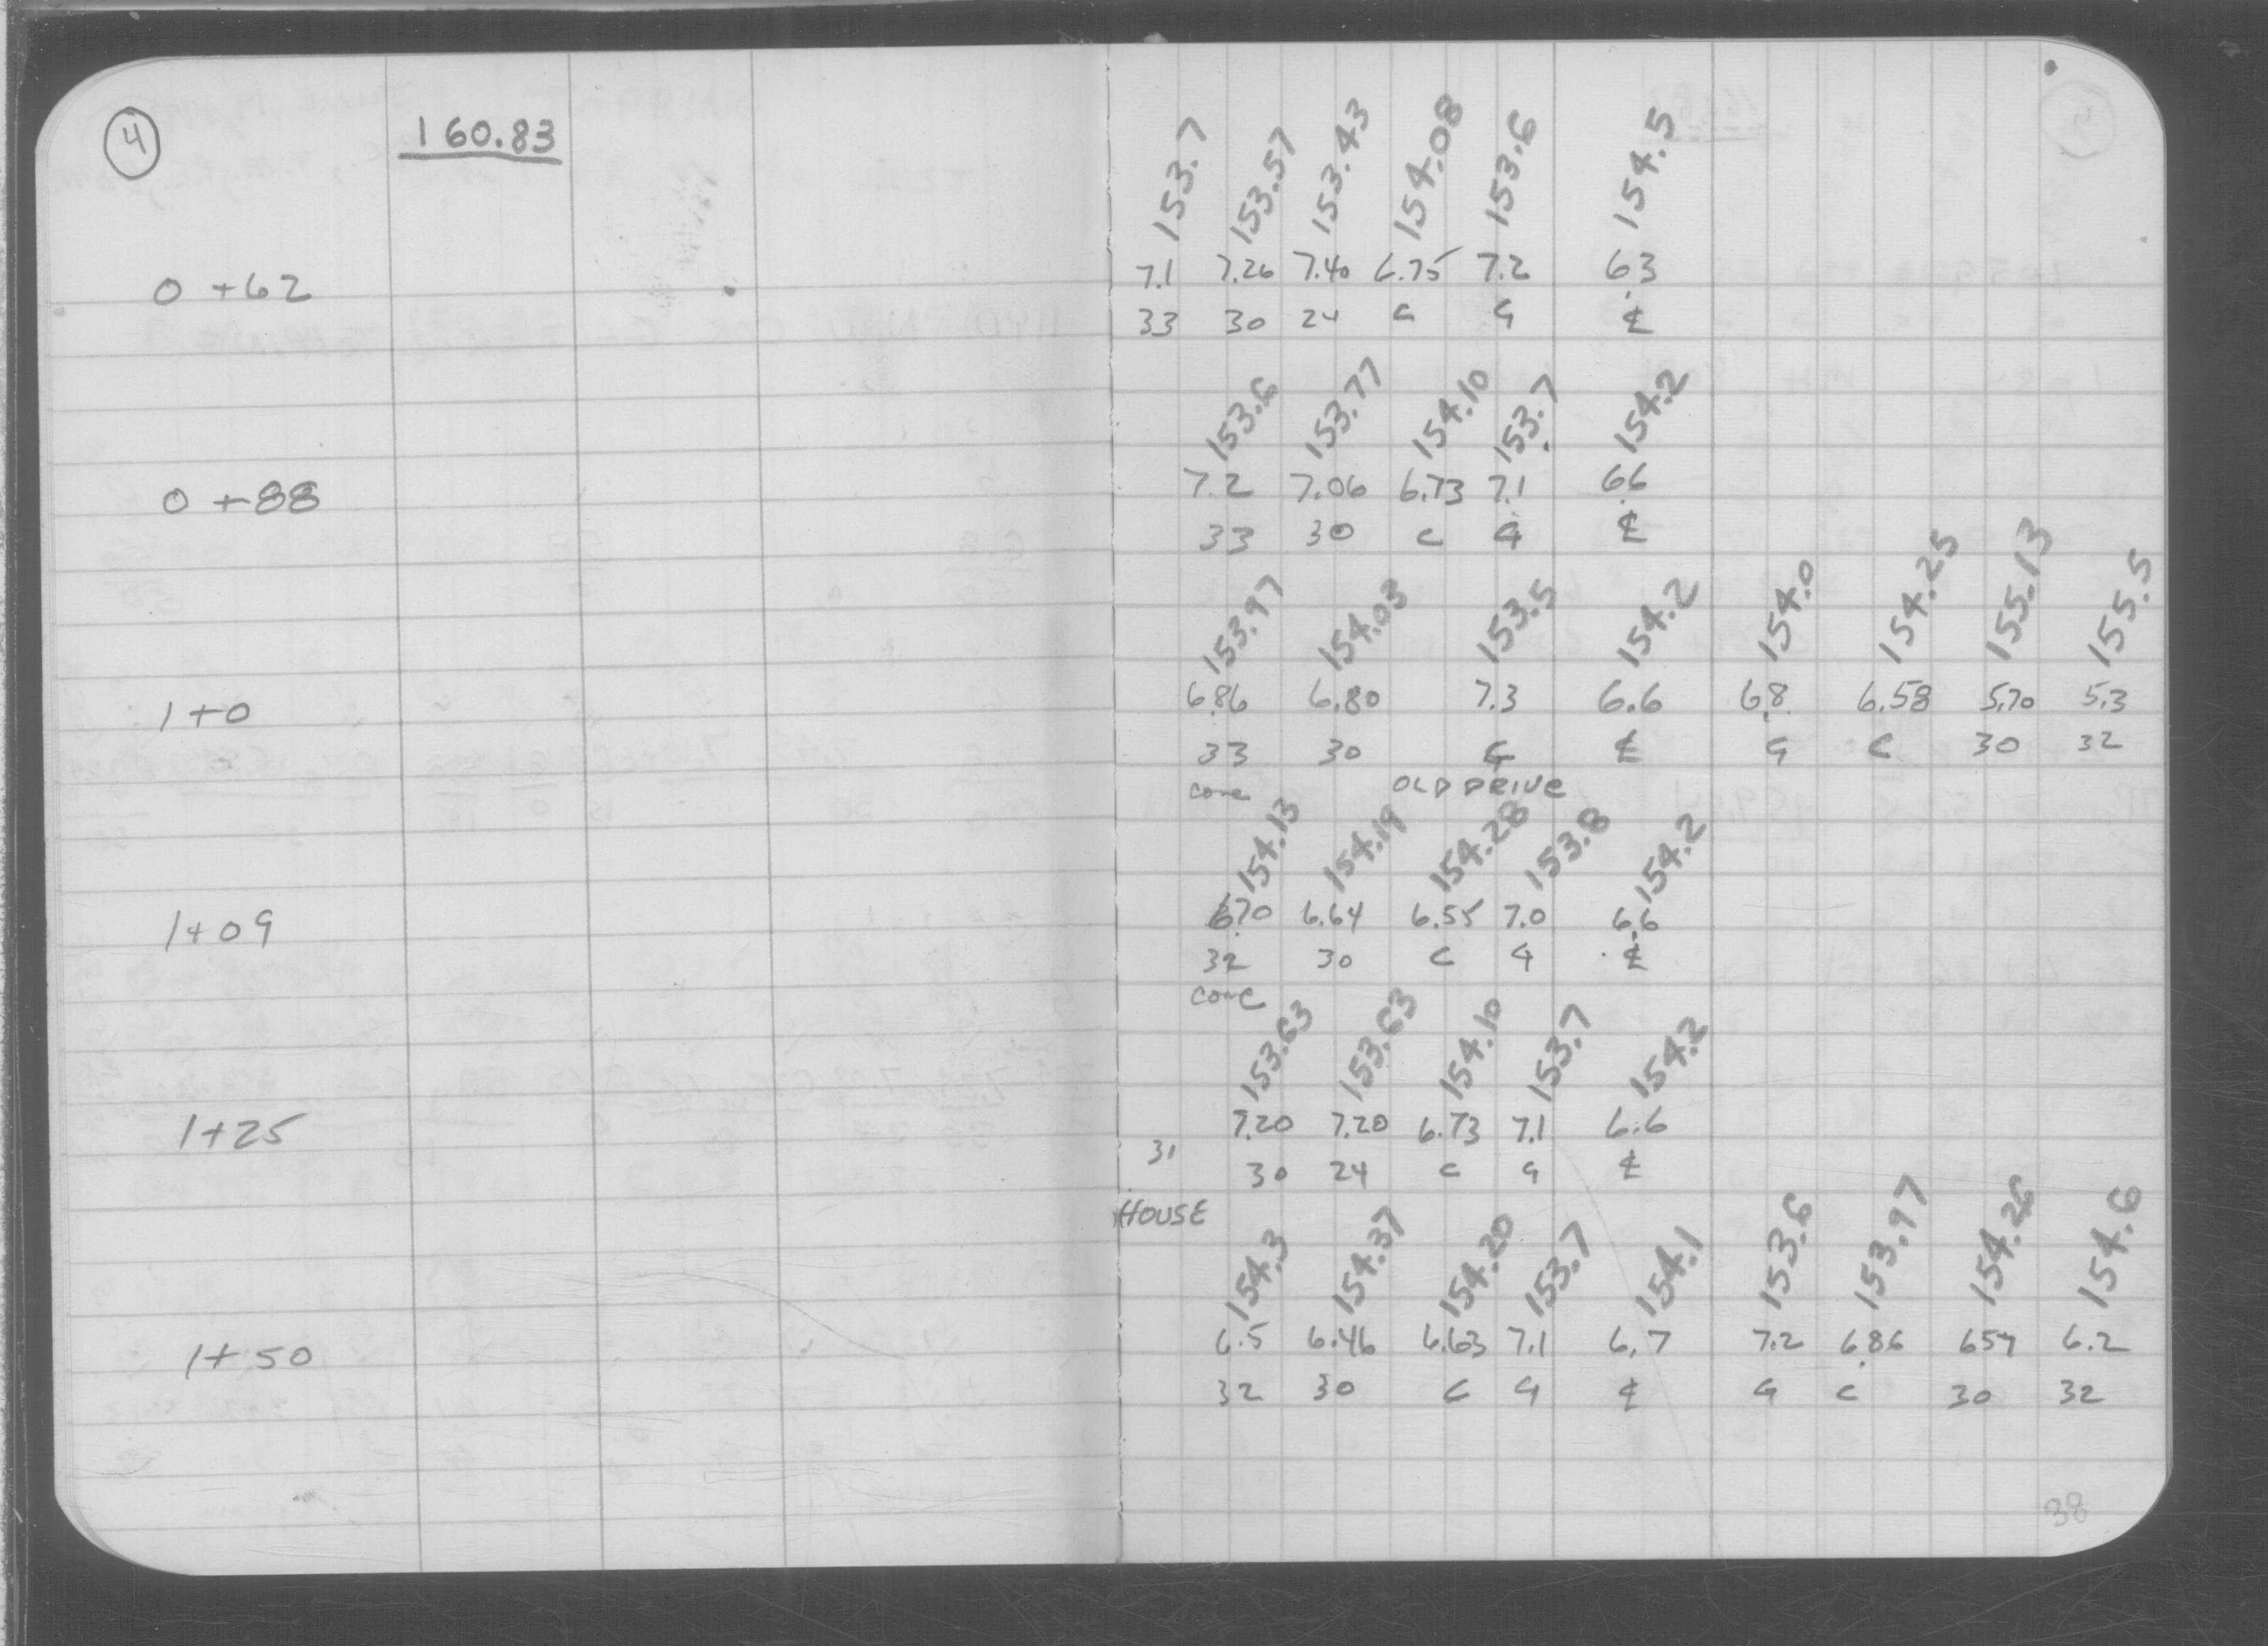 4 160.83
153.7 153.57 153.43 154.08 153.6 154.5
0+62 7.1 7.26 7.40 6.75 7.2 6.3
33 30 24 C G ℄
153.6 153.77 154.10 153.7 154.2
0+88 7.2 7.06 6.73 7.1 6.6
33 30 C G ℄
153.97 154.03 153.5 154.2 154.0 154.25 155.13 155.5
1+0 6.86 6.80 7.3 6.6 6.8 6.58 5.70 5.3
33 30 G ℄ G C 30 32
conc OLD DRIVE
154.13 154.19 154.28 153.8 154.2
1+09 6.70 6.64 6.55 7.0 6.6
32 30 C G ℄
conc
153.63 153.63 154.10 153.7 154.2
1+25 7.20 7.20 6.73 7.1 6.6
31 30 24 C G ℄
HOUSE
154.3 154.37 154.20 153.7 154.1 153.6 153.97 154.26 154.6
1+50 6.5 6.46 6.63 7.1 6.7 7.2 6.86 6.57 6.2
32 30 C G ℄ G C 30 32
38